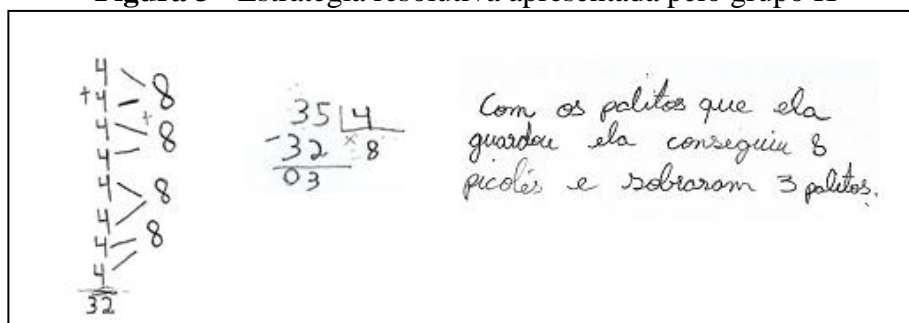 Figura 3 - Estratégia resolutiva apresentada pelo grupo H
4
+4
4
4
4
4
4
4
32
8
+
8
8
8
35 4
-32 × 8
03
Com os palitos que ela
guardou ela conseguiu 8
picolés e sobraram 3 palitos.